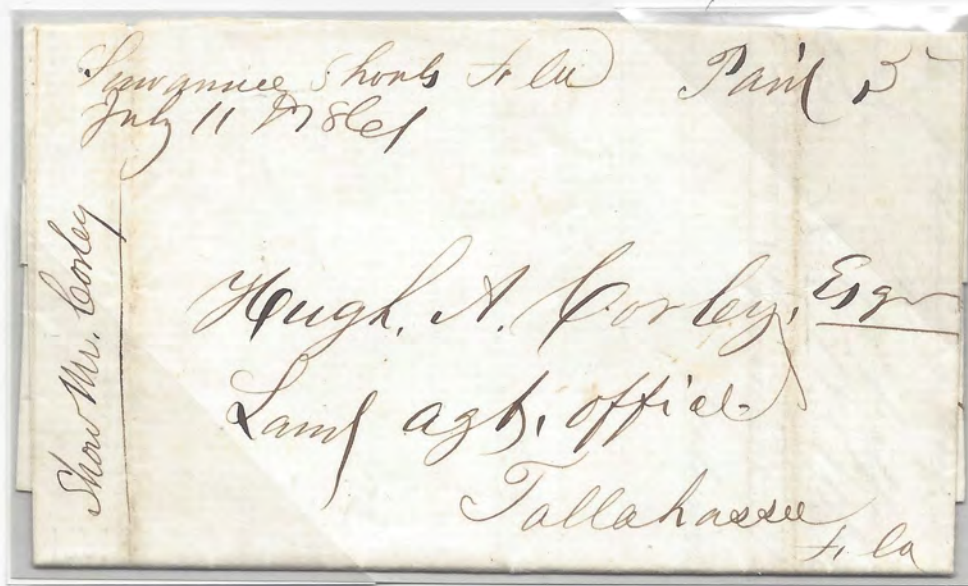 Suwannee Shoals Fla Paid 5
July 11th 1861
Show Mr. Corley
Hugh. A. Corley, Esqr
Land agts, office
Tallahassee
Fla